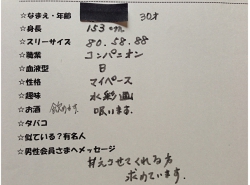 ☆なまえ・年齢 30才
☆身長 153cm
☆スリーサイズ 80.58.88
☆職業 コンパニオン
☆血液型 B
☆性格 マイペース
☆趣味 水彩画
☆お酒 飲めます
☆タバコ 吸います。
☆似ている?有名人
☆男性会員さまへメッセージ
甘えさせてくれる方
求めています。